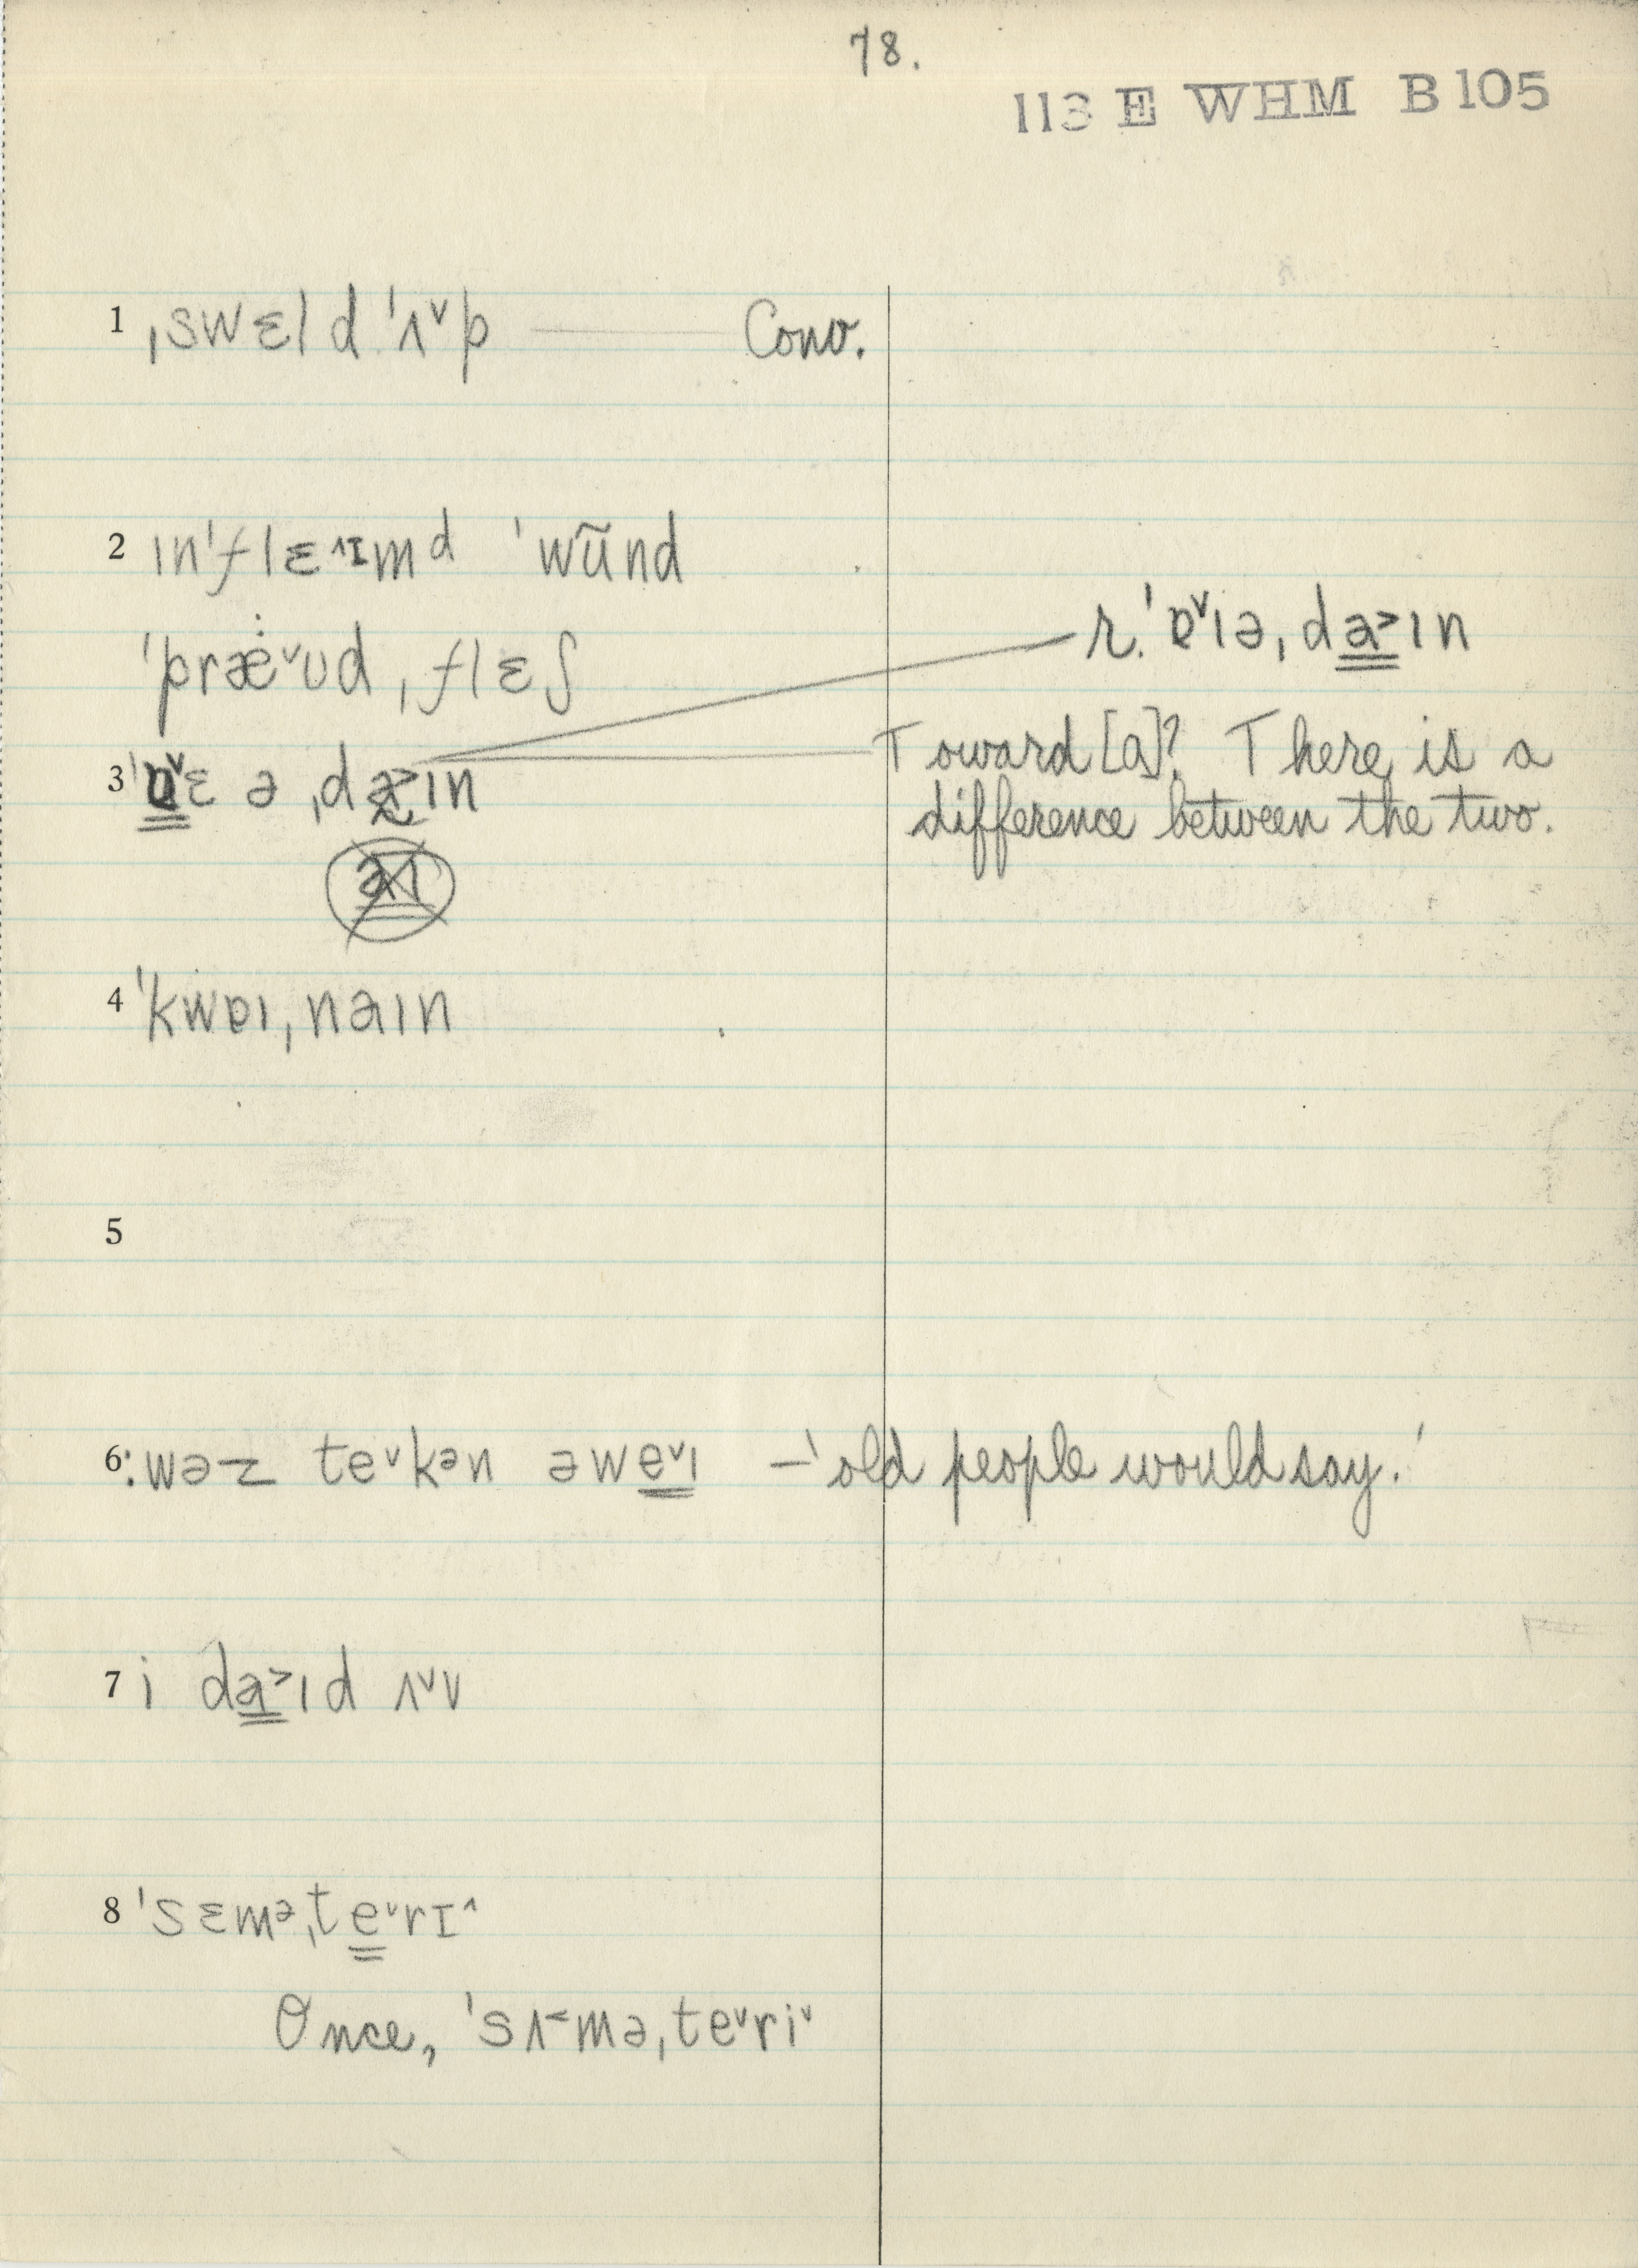 78.
113 E WHM B 105
1 ˌswɛld ˈʌ˅p — Conv.
2 ɪnˈflɛ˄ɪmd ˈwũnd
ˈpræ̇˅ʊd ˌflɛʃ
r. ˈɒ˅ɪə ˌda˃ɪn
3 ˈɒ˅ɛ ə ˌda˃ɪn
Toward [a]? There is a
difference between the two.
4 ˈkwɒɪ ˌnaɪn
5
6 : wəz te˅kən əwe˅ɪ — 'old people would say.'
7 i da˃ɪd ʌ˅v
8 ˈsɛməˌte˅rɪ˄
Once, ˈsʌ˂məˌte˅ri˅